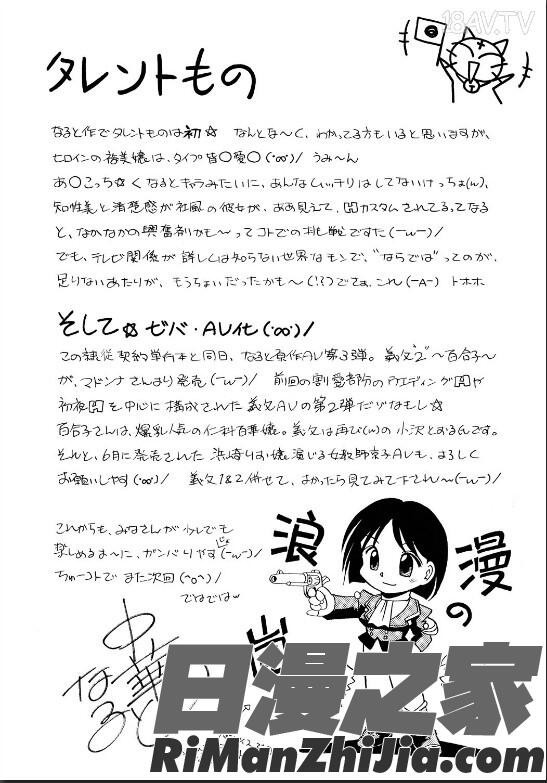 18AV.TV
タレントもの
なると作でタレントものは初☆ なんとな〜く、わかってる方もいると思いますが、
ヒロインの裕美嬢は、タイプ皆〇愛〇(・∞・)/ うみ〜ん
あ〇こっち☆くなるとキャラみたいに、あんなムッチリはしてないけっちょ(ω)、
知性美と清楚感が社風の彼女が、ああ見えて、凹カスタムされてるってなる
と、なかなかの興奮剤かも〜ってコトでの挑戦ですた(ーωー)/
でも、テレビ関係が詳しくは知らない世界なモンで、“ならでは”ってのが、
足りないあたりが、もうちょいだったかも〜(!?)でてぁ、これ(-A-) トホホ
そして☆ ゼバ・AV化(・∞・)/
この隷従契約単行本と同日、なると原作AV第3弾。義父“2”〜百合子〜
が、マドンナさんより発売(ーωー)/ 前回の割愛箇所のウエディング凹や
初夜凹を中心に構成された義父AVの第2弾だゾなもし☆
百合子さんは、爆乳人気の仁科百華嬢。義父は再び(ω)の小沢とおるんです。
それと、6月に発売された浜崎りお嬢演じる女教師京子AVも、よろしく
お願いしやす(・∞・)/ 義父1&2併せて、よかったら見てみて下されー(ーωー)/
これからも、みなさんが少しでも
楽しめるよーに、ガンバりやすじょ(ーωー)/
ちゅーコトで また次回(^o^)/
でわでは
浪漫の
中華
なると
日漫之家
RiManZhiJia.com/